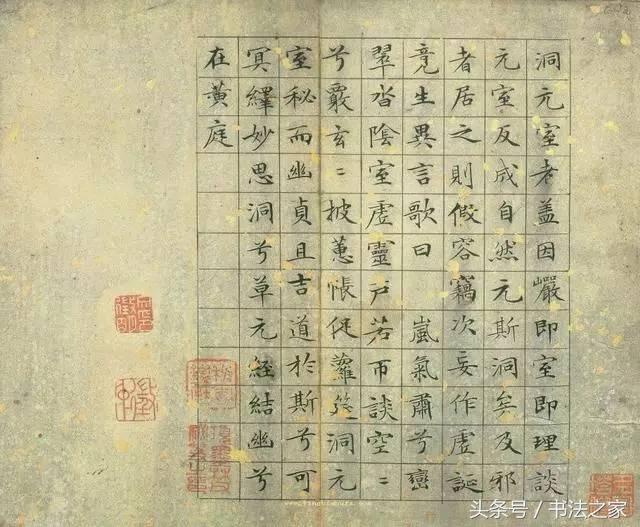 洞元室者盖因巖即室即理談
元室反成自然元斯洞矣及邪
者居之則假容竊次妄作虚誕
竟生異言歌曰　嵐氣肅兮巒
翠沓陰室虚靈户若帀談空〻
兮覈玄〻披蕙帳促蘿筵洞元
室秘而幽貞且吉道於斯兮可
冥繹妙思洞兮草元經結幽兮
在黄庭
头条号 / 书法之家